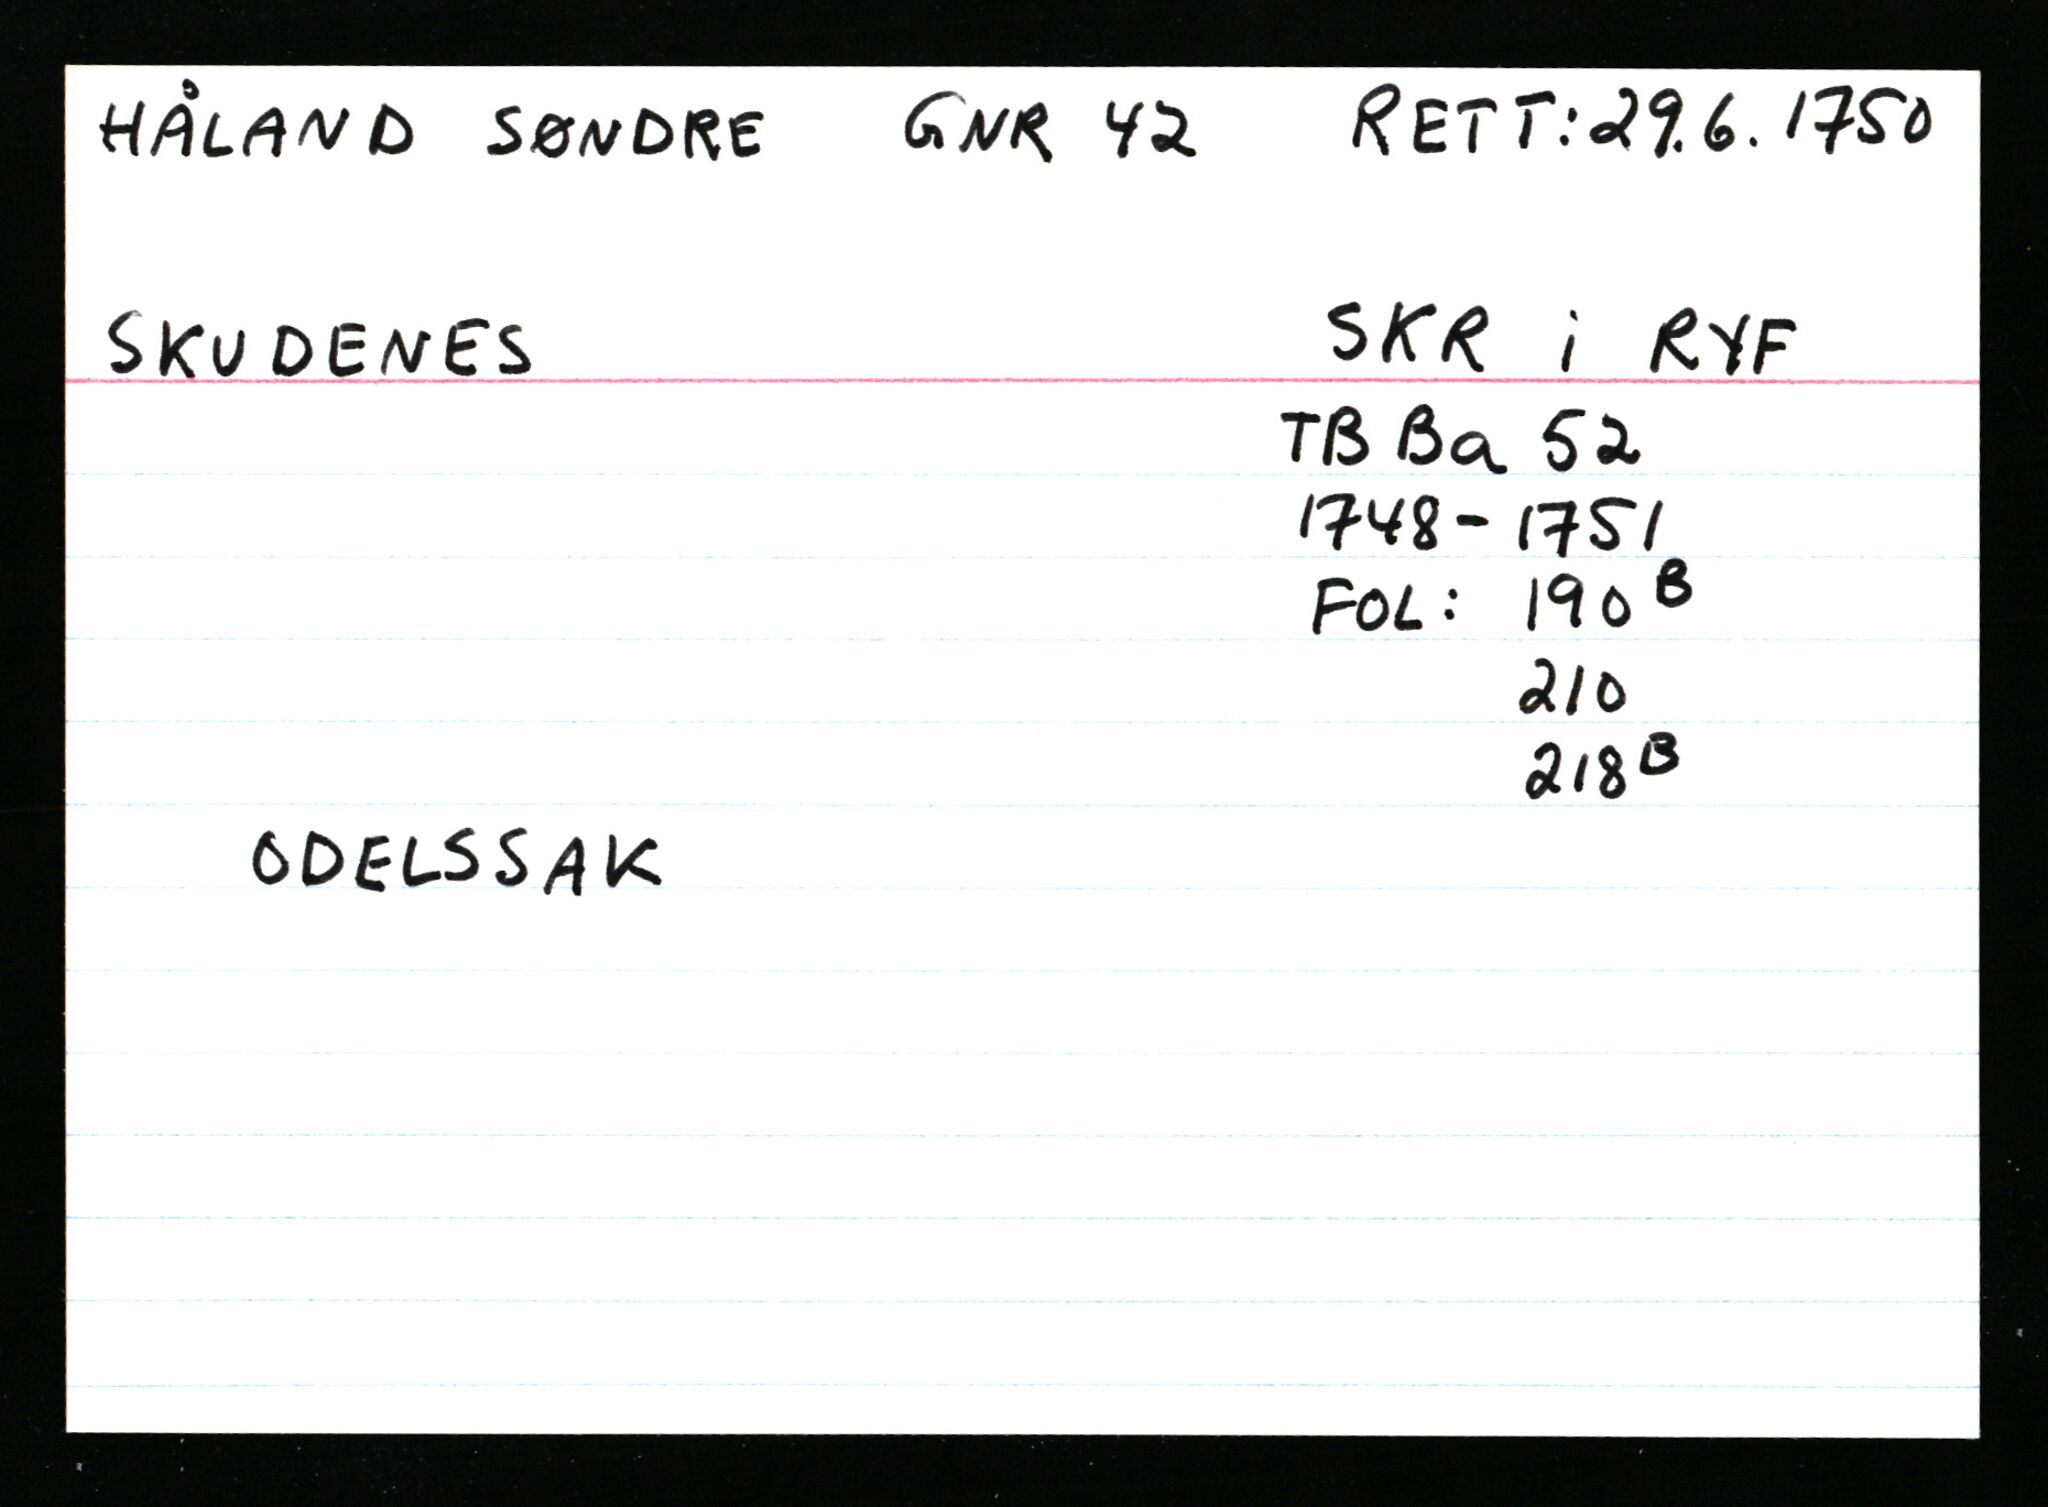 HÅLAND SØNDRE GNR 42 RETT: 29.6.1750
SKUDENES SKR i RYF
TB Ba 52
1748-1751
FOL: 190 B
210
218 B
ODELSSAK